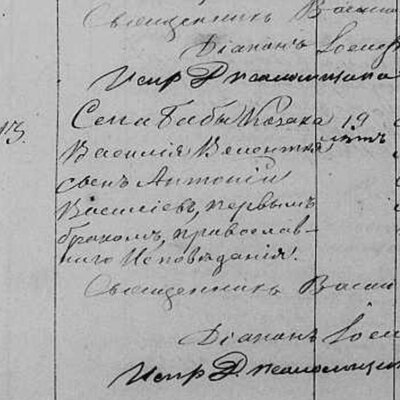 Священникъ Васили
Діаконъ Іосиф
Испр. Д. Псаломщика
13. Села Бабы Козака 19
Василія Велентея лѣтъ
сынъ Антоній
Василіевъ, первымъ
бракомъ, православ-
наго Исповѣданія.
Священникъ Васили
Діаконъ Іоси
Испр. Д. Псаломщик